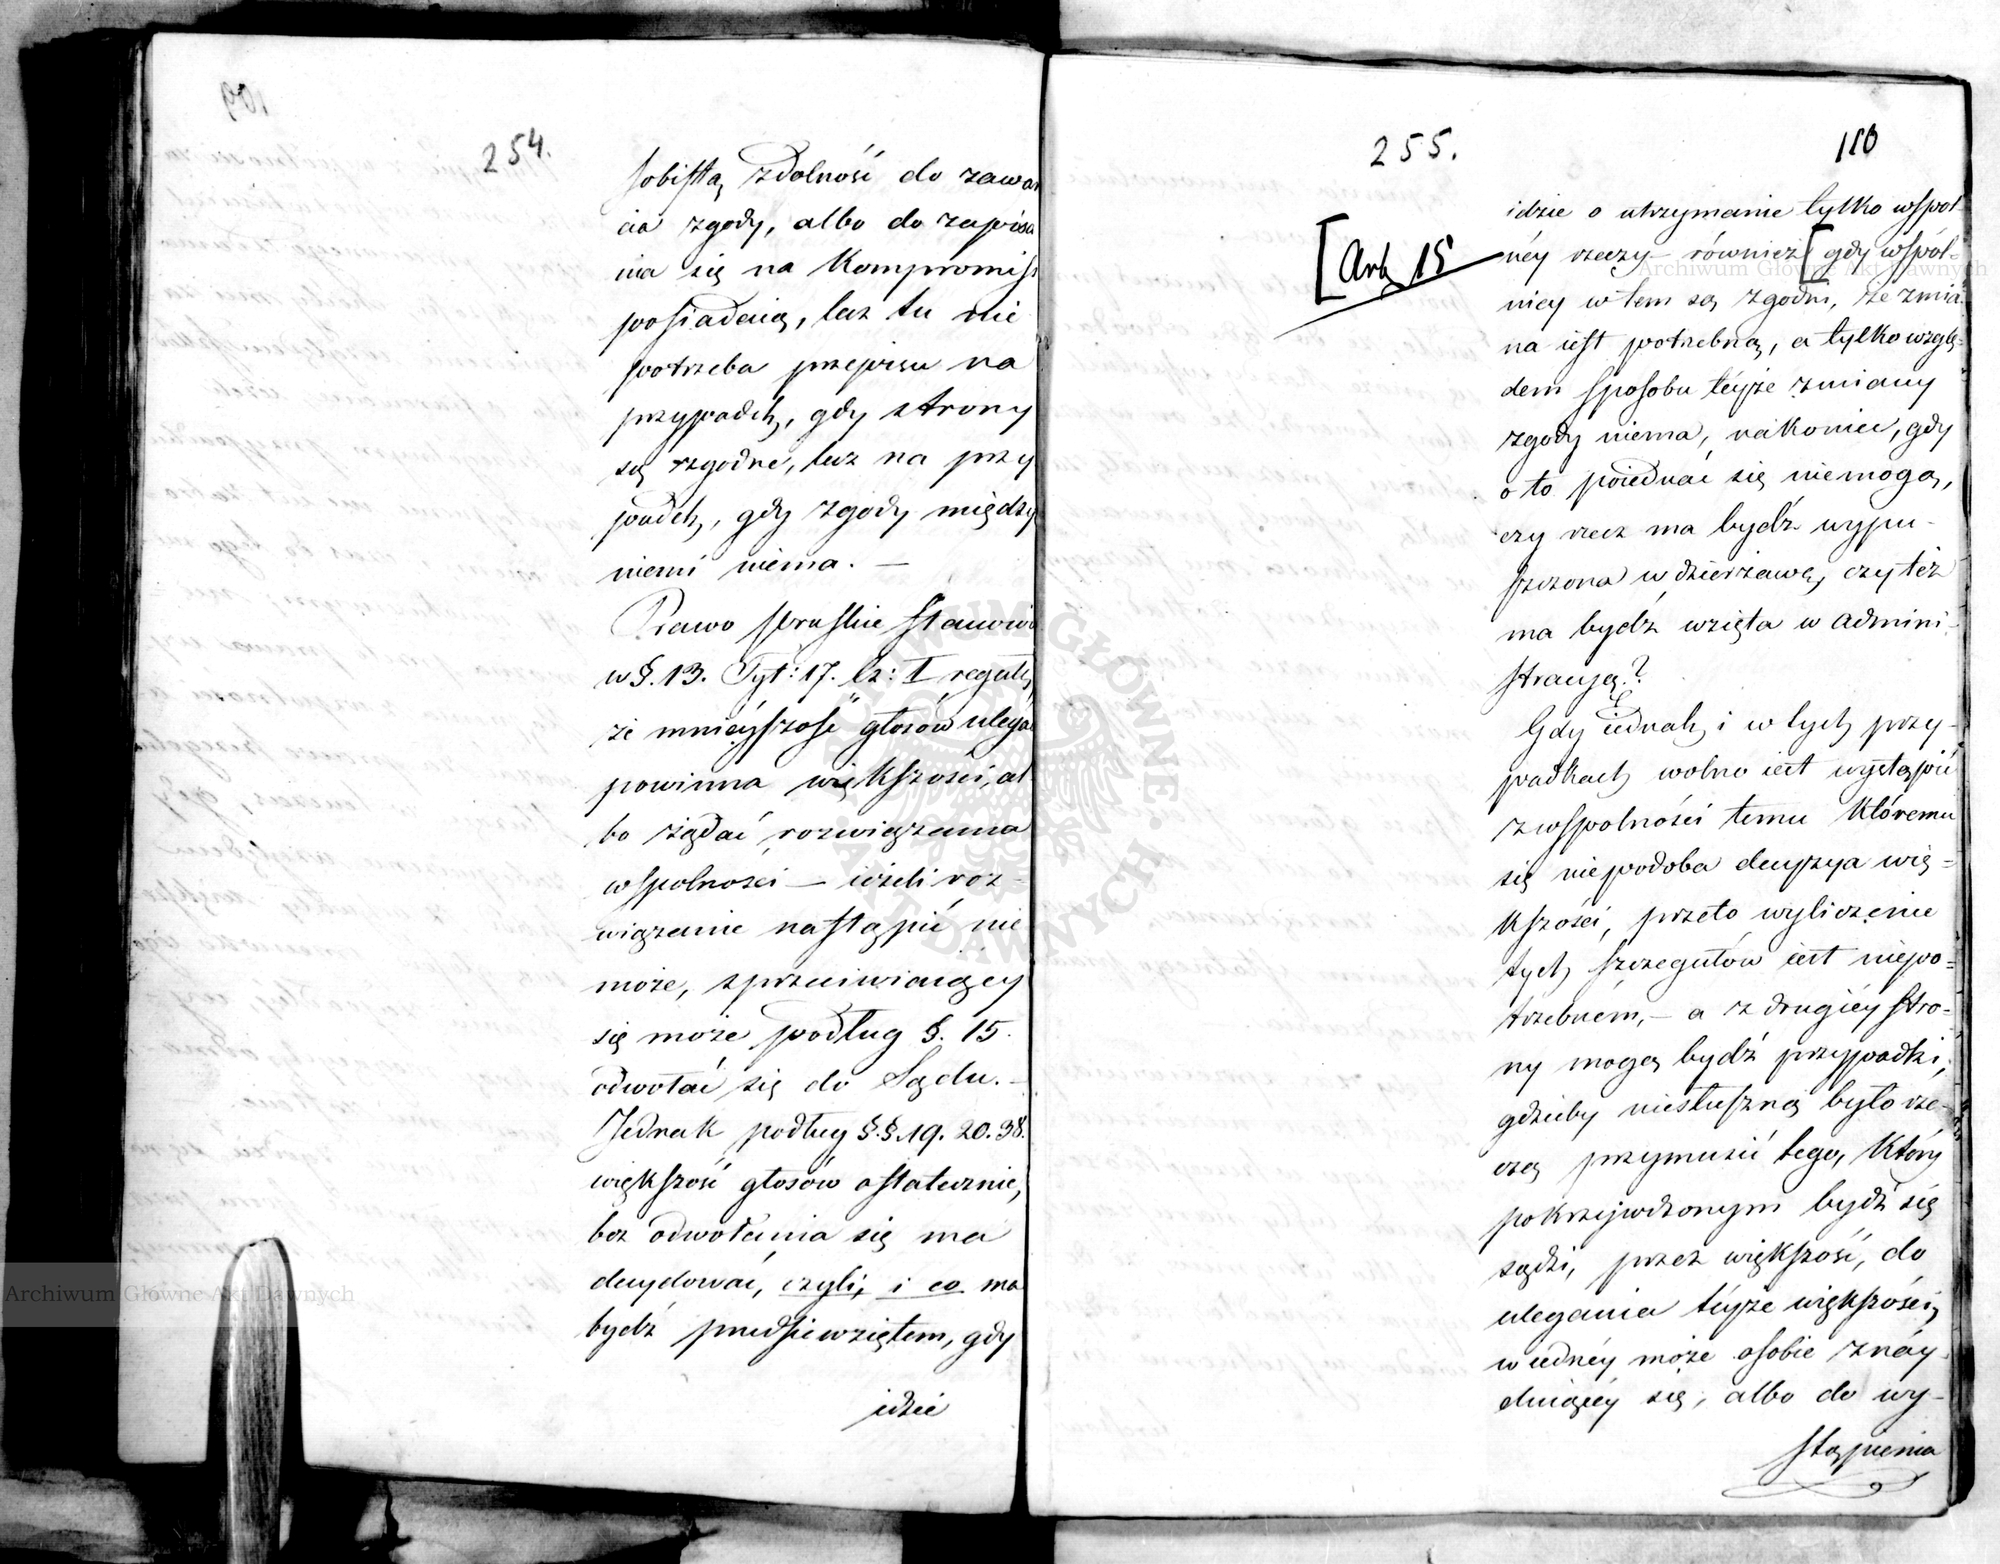 254.
sobistą zdolność do zawar
cia zgody, albo do zapisa
nia się na Kompromis
posiadaią, lecz tu nie
potrzeba przepisu na
przypadek, gdy strony
są zgodne, lecz na przy
padek, gdy zgody między
niemi niema. —
Prawo pruskie stanowi
w §. 13. Tyt: 17. Cz: I regułę,
że mnieyszość głosów ulegać
powinna większości, al
bo żądać rozwiązania
wspolnosci — ieżeli roz-
wiązanie nastąpić nie
może, sprzeciwiaiący
się może podług §. 15.
odwołać się do Sądu. —
Jednak podług §.§. 19. 20. 38.
większość głosów ostatecznie,
bez odwołania się ma
decydować, czyli, i co ma
bydź przedsiewziętem, gdy
idzie
255.
110
[Art 15
idzie o utrzymanie tylko wspol-
néy rzeczy — również [gdy wspól-
nicy w tem są zgodni, że zmia
na iest potrzebną, a tylko wzglę-
dem sposobu teyże zmiany
zgody niema, nakoniec, gdy
o to poiednać się niemogą,
czy rzecz ma bydź wypu-
szczona w dzierżawę, czy też
ma bydź wzięta w admini-
stracyą?
Gdy iednak i w tych przy-
padkach wolno iest wystąpić
z wspolności temu któremu
się niepodoba decyzya wię-
kszości, przeto wyliczenie
tych szczegułów iest niepo-
trzebném, — a z drugiéy stro-
ny mogą bydź przypadki,
gdzieby niesłuszną było rze-
czą przymusić tego, który
pokrzywdzonym bydź się
sądzi, przez większość, do
ulegania téyże większości,
w iednéy może osobie znáy-
duiącéy się, albo do wy-
stąpienia
109
Archiwum Główne Akt Dawnych
Archiwum Główne Akt Dawnych